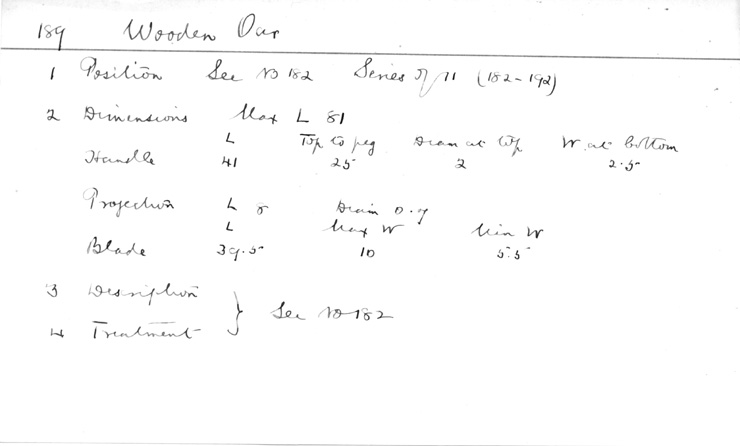 189 Wooden Oar
1 Position See No 182 Series of 11 (182-192)
2 Dimensions Max L 81
L Top to peg Diam at top W. at bottom
Handle 41 25 2 2.5
Projection L 8 Diam 0.7
L Max W Min W
Blade 39.5 10 5.5
3 Description
} See No 182
4 Treatment